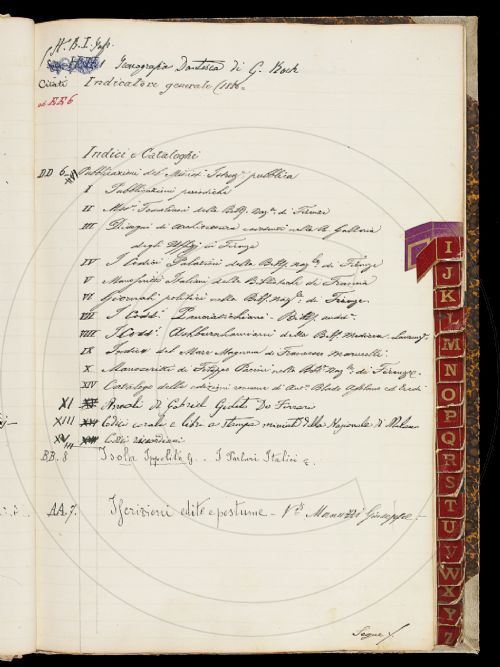 Iconografia Dantesca di G. Bock
Citati Indicatore generale (1886=
od EE6
Indici e Cataloghi
DD 6 Pubblicazioni del Minist. Istruz. pubblica
I Pubblicazioni periodiche
II Mss. Foscoliani della Bibl. Naz. di Firenze
III Disegni di architettura esistenti nella R. Galleria
degli Uffizj in Firenze
IV I Codici Palatini della Bibl. Naz. di Firenze
V Manoscritti Italiani delle Biblioteche di Francia
VI Giornali politici nella Bibl. Naz. di Firenze
VII I Codd. Panciatichiani
VIII I Codd. Ashburnhamiani della Bibl. Mediceo Laurenz.
IX Indice del Mare Magnum di Francesco Marucelli
X Manoscritti di Filippo Pacini della Bibl. Naz. di Firenze
XIV Catalogo delle edizioni romane di Ant. Blado Asolano ed Eredi
XI Annali di Gabriel Giolito De Ferrari
XIII Codici corali e libri a stampa miniati della Nazionale di Milano
XV Codici riccardiani
BB. 8 Isola Ippolito G. I Parlari Italici
AA. 7. Iscrizioni edite e postume - V. Manuzzi Giuseppe
Segue
I
J
K
L
M
N
O
P
Q
R
S
T
U
V
W
X
Y
Z